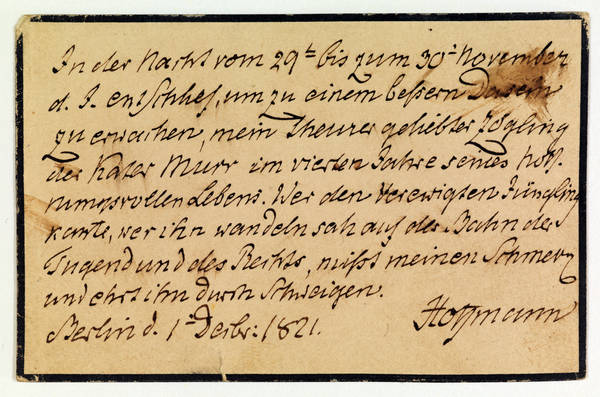 In der Nacht vom 29t bis zum 30t November
d. J. entschlief, um zu einem beßern Dasein
zu erwachen, mein theurer geliebter Zögling
der Kater Murr im vierten Jahre seines hoff
nungsvollen Lebens. Wer den verewigten Jüngling
kante, wer ihn wandeln sah auf der Bahn der
Tugend und des Rechts, mißt meinen Schmerz
und ehrt ihn durch Schweigen.
Berlin d. 1t Decbr: 1821. Hoffmann